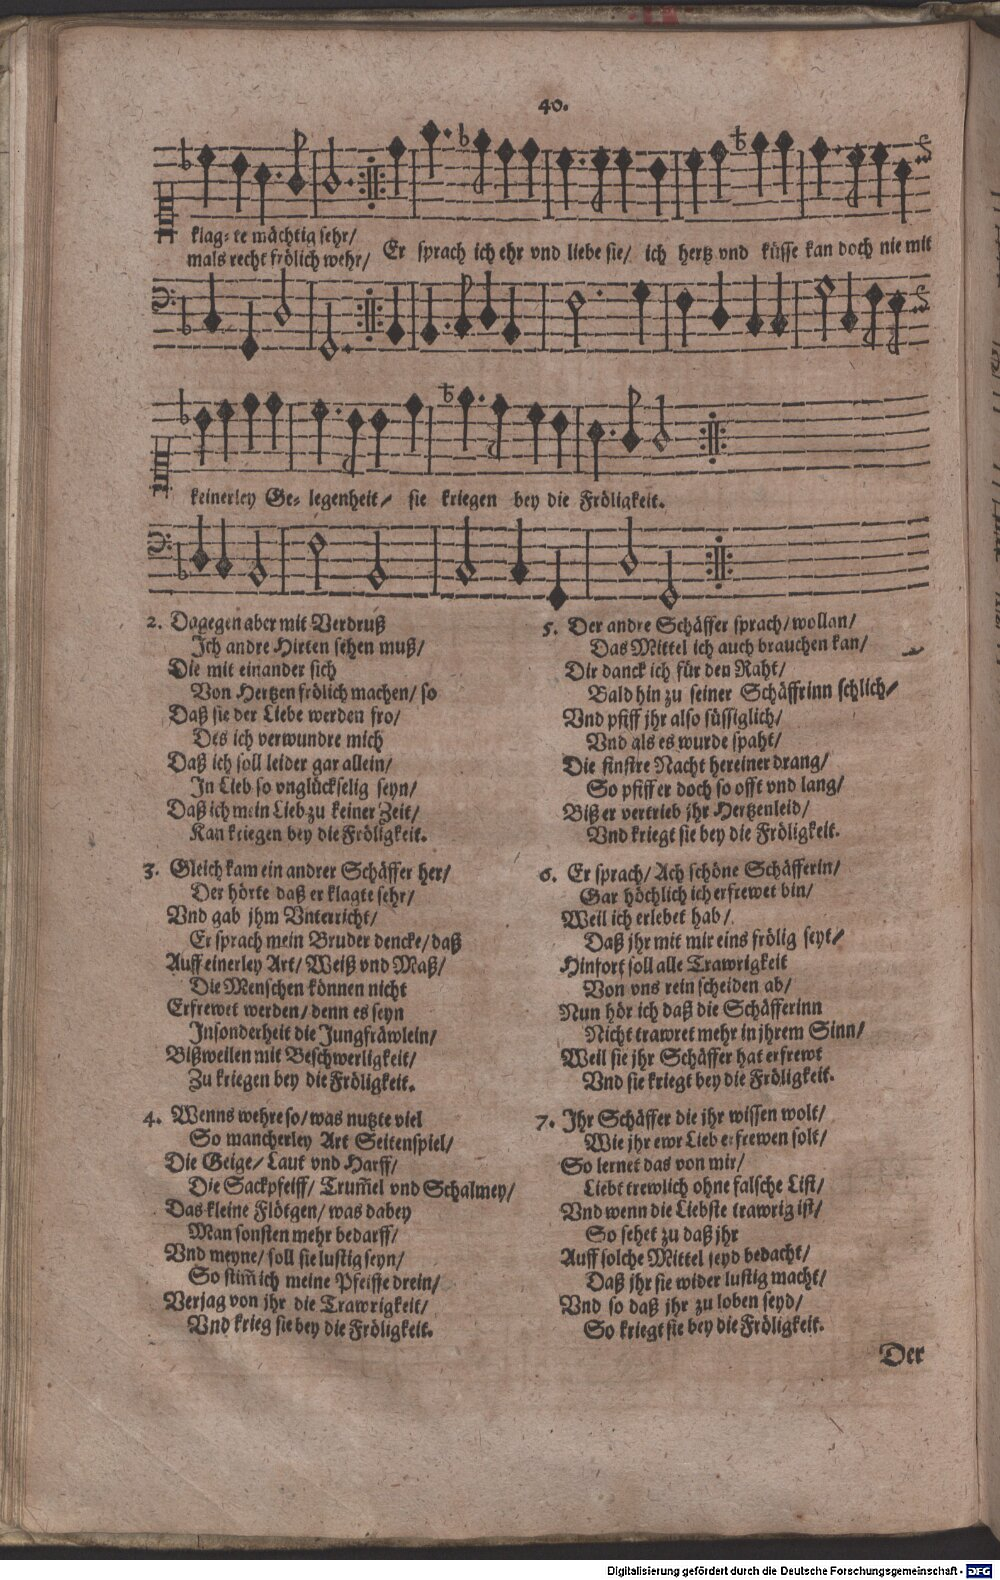 40.
klag- te mächtig sehr/
mals recht frölich wehr/ Er sprach ich ehr vnd liebe sie/ ich hertz vnd küsse kan doch nie mit
keinerley Ge- legenheit/ sie kriegen bey die Fröligkeit.
2. Dagegen aber mit Verdruß
Ich andre Hirten sehen muß/
Die mit einander sich
Von Hertzen frölich machen/ so
Daß sie der Liebe werden fro/
Des ich verwundre mich
Daß ich soll leider gar allein/
In Lieb so vnglückselig seyn/
Daß ich mein Lieb zu keiner Zeit/
Kan kriegen bey die Fröligkeit.
3. Gleich kam ein andrer Schäffer her/
Der hörte daß er klagte sehr/
Vnd gab jhm Vnterricht/
Er sprach mein Bruder dencke/ daß
Auff einerley Art/ Weiß vnd Maß/
Die Menschen können nicht
Erfrewet werden/ denn es seyn
Insonderheit die Jungfräwlein/
Bißweilen mit Beschwerligkeit/
Zu kriegen bey die Fröligkeit.
4. Wenns wehre so/ was nutzte viel
So mancherley Art Seitenspiel/
Die Geige/ Laut vnd Harff/
Die Sackpfeiff/ Trum̃el vnd Schalmey/
Das kleine Flötgen/ was dabey
Man sonsten mehr bedarff/
Vnd meyne/ soll sie lustig seyn/
So stim̃ ich meine Pfeiffe drein/
Verjag von jhr die Trawrigkeit/
Vnd krieg sie bey die Fröligkeit.
5. Der andre Schäffer sprach/ wollan/
Das Mittel ich auch brauchen kan/
Dir danck ich für den Raht/
Bald hin zu seiner Schäffrinn schlich/
Vnd pfiff jhr also süssiglich/
Vnd als es wurde spaht/
Die finstre Nacht hereiner drang/
So pfiff er doch so offt vnd lang/
Biß er vertrieb jhr Hertzenleid/
Vnd kriegt sie bey die Fröligkeit.
6. Er sprach/ Ach schöne Schäfferin/
Gar höchlich ich erfrewet bin/
Weil ich erlebet hab/
Daß jhr mit mir eins frölig seyt/
Hinfort soll alle Trawrigkeit
Von vns rein scheiden ab/
Nun hör ich daß die Schäfferinn
Nicht trawret mehr in jhrem Sinn/
Weil sie jhr Schäffer hat erfrewt
Vnd sie kriegt bey die Fröligkeit.
7. Ihr Schäffer die jhr wissen wolt/
Wie jhr ewr Lieb erfrewen solt/
So lernet das von mir/
Liebt trewlich ohne falsche List/
Vnd wenn die Liebste trawrig ist/
So sehet zu daß jhr
Auff solche Mittel seyd bedacht/
Daß jhr sie wider lustig macht/
Vnd so daß jhr zu loben seyd/
So kriegt sie bey die Fröligkeit.
Der
Digitalisierung gefördert durch die Deutsche Forschungsgemeinschaft - DFG